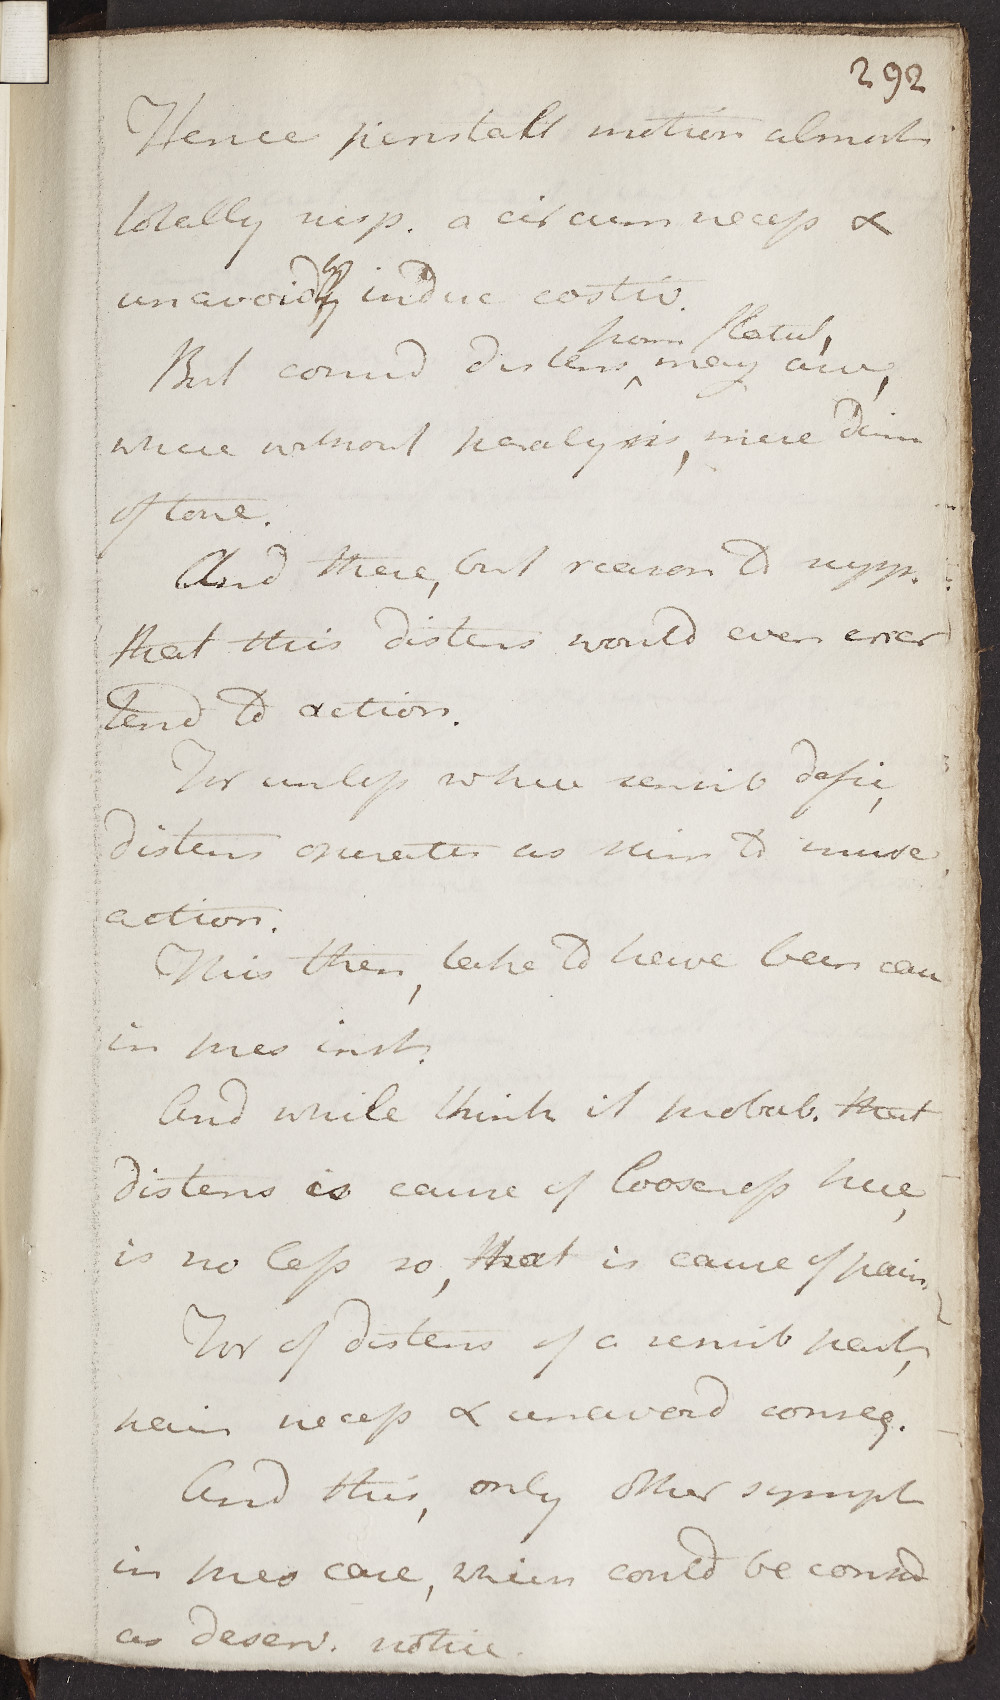 292
Hence peristalt motion almost
totally susp. a circum necess &
unavoidy induc costiv.
But consid distens from flatul, may occur,
where without paralysis, mere dim
of tone.
And there, but reason to supp.
that this distens would even ever
tend to action.
For unless where sensib defic,
distens operates as stim to musc.
action.
This then, take to have been cau
in pres inst.
And while think it probab. that
distens is cause of looseness here,
is no less so, that is cause of pain
For of distens of a sensib part,
pain necess & unavoid conseq.
And this, only other sympt
in pres case, which could be consid
as deserv. notice.